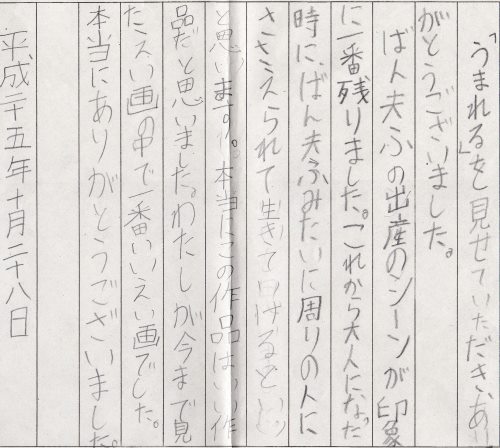 「うまれる」を見せていただき、あり
がとうございました。
ばん夫ふの出産のシーンが印象
に一番残りました。これから大人になった
時に、ばん夫ふみたいに周りの人に
ささえられて生きて行けるといい
と思います。本当にこの作品はいい作
品だと思いました。わたしが今まで見
たえい画の中で一番いいえい画でした。
本当にありがとうございました。
平成二十五年十月二十八日